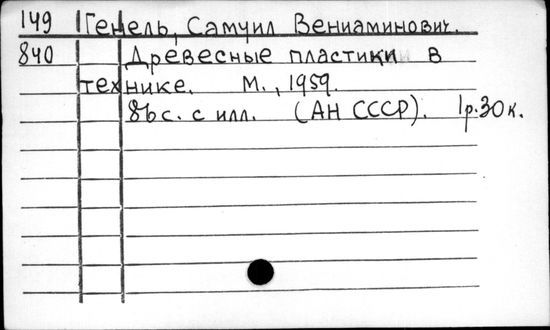 149 Генель, Самуил Вениаминович.
840 Древесные пластики в
технике. М., 1959.
с. с илл. (АН СССР). 1р.30к.